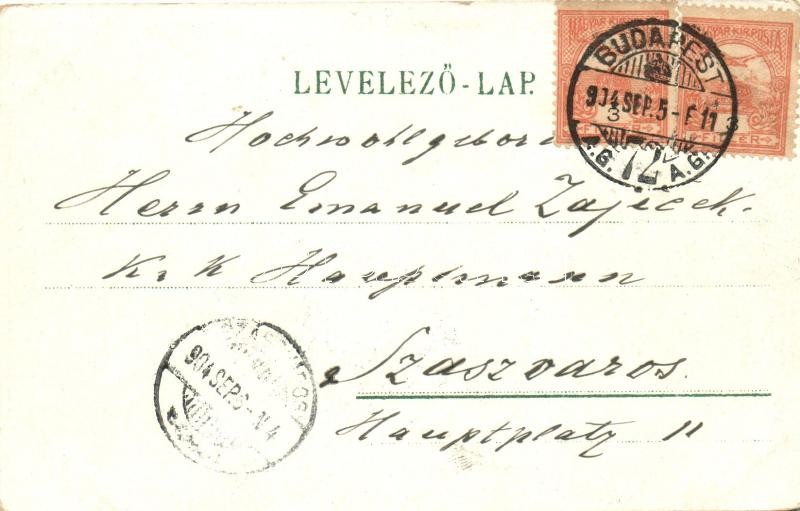 LEVELEZŐ-LAP.
MAGYAR KIR. POSTA
MAGYAR KIR. POSTA
BUDAPEST
904 SEP. 5 - F 11
3 3
72
A.G.
Hochwohlgeboren
Herrn Emanuel Zajicek.
K. u. K Hauptmann
Szaszvaros.
Hauptplatz 11
904 SEP. 6 - N 4